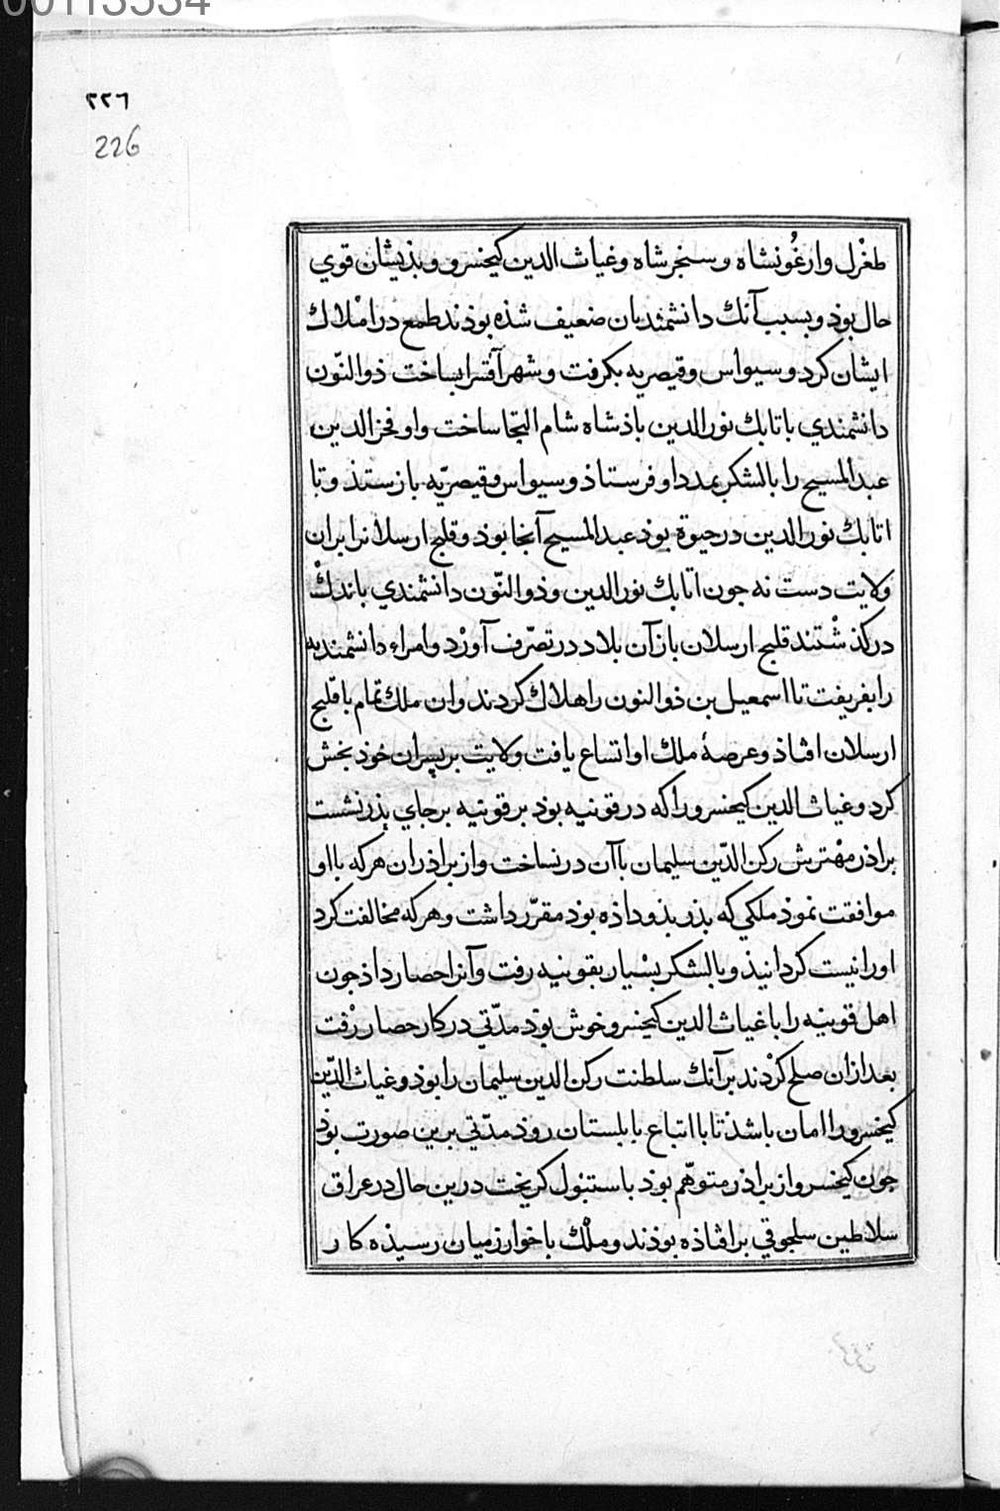 00113534
٢٢٦
226
طغْرل وارغُونشاه و سنجر شاه وغیاث الدین کیخسرو و بذیشان قوي
حال بوذ و بسبب آنك دانشمندیان ضعیف شذه بوذند طمع در املاك
ایشان کرد و سیواس و قیصریه بکرفت و شهر آقسرا بساخت ذوالنّون
دانشمندي باتابك نورالدین باذشاه شام التجا ساخت و او فخرالدین
عبدالمسیح را بالشکر بمدد او فرستاذ و سیواس و قیصریّه بازستذ و تا
اتابك نورالدین در حیوة بوذ عبدالمسیح آنجا بوذ و قلج ارسلانرا بران
ولایت دست نه جون اتابك نورالدین و ذوالنّون دانشمندي باندكْ
درکذشْتند قلج ارسلان باز آن بلاد در تصرّف آورْد و امراء دانشمندیه
را بفریفت تا اسمعیل بن ذوالنون را هلاك کردند و ان ملك تمام با قلج
ارسلان افتاذ و عرصهٔ ملك او اتساع یافت ولایت بر پسران خوذ بخش
کرد و غیاث الدین کیخسرو را که در قونیه بوذ بر قونیه برجاي بذر نشست
براذر مهْترش رکن الدّین سلیمان باآن درنساخت و از براذران هرکه با او
موافقت نموذ ملکي که بذر بذو داذه بوذ مقرّر داشت و هرکه مخالفت کرد
اورا نیست کردانیذ و بالشکر بسْیار بقونیه رفت و آنرا حصار داذ جون
اهل قونیه را با غیاث الدین کیخسرو خوش بوذ مدّتي در کار حصار رفْت
بعد ازان صلح کرْدند بر آنك سلطنت رکن الدین سلیمان را بوذ و غیاث الدّین
کیخسرو را امان باشذ تا با اتباع بابلستان روذ مدّتي برین صورت بوذ
جون کیخسرو از براذر متوهّم بوذ باستنبول کریخت درین حال در عراق
سلاطین سلجوقي برافتاذه بوذند و ملْك با خوارزمیان رسیذه کار